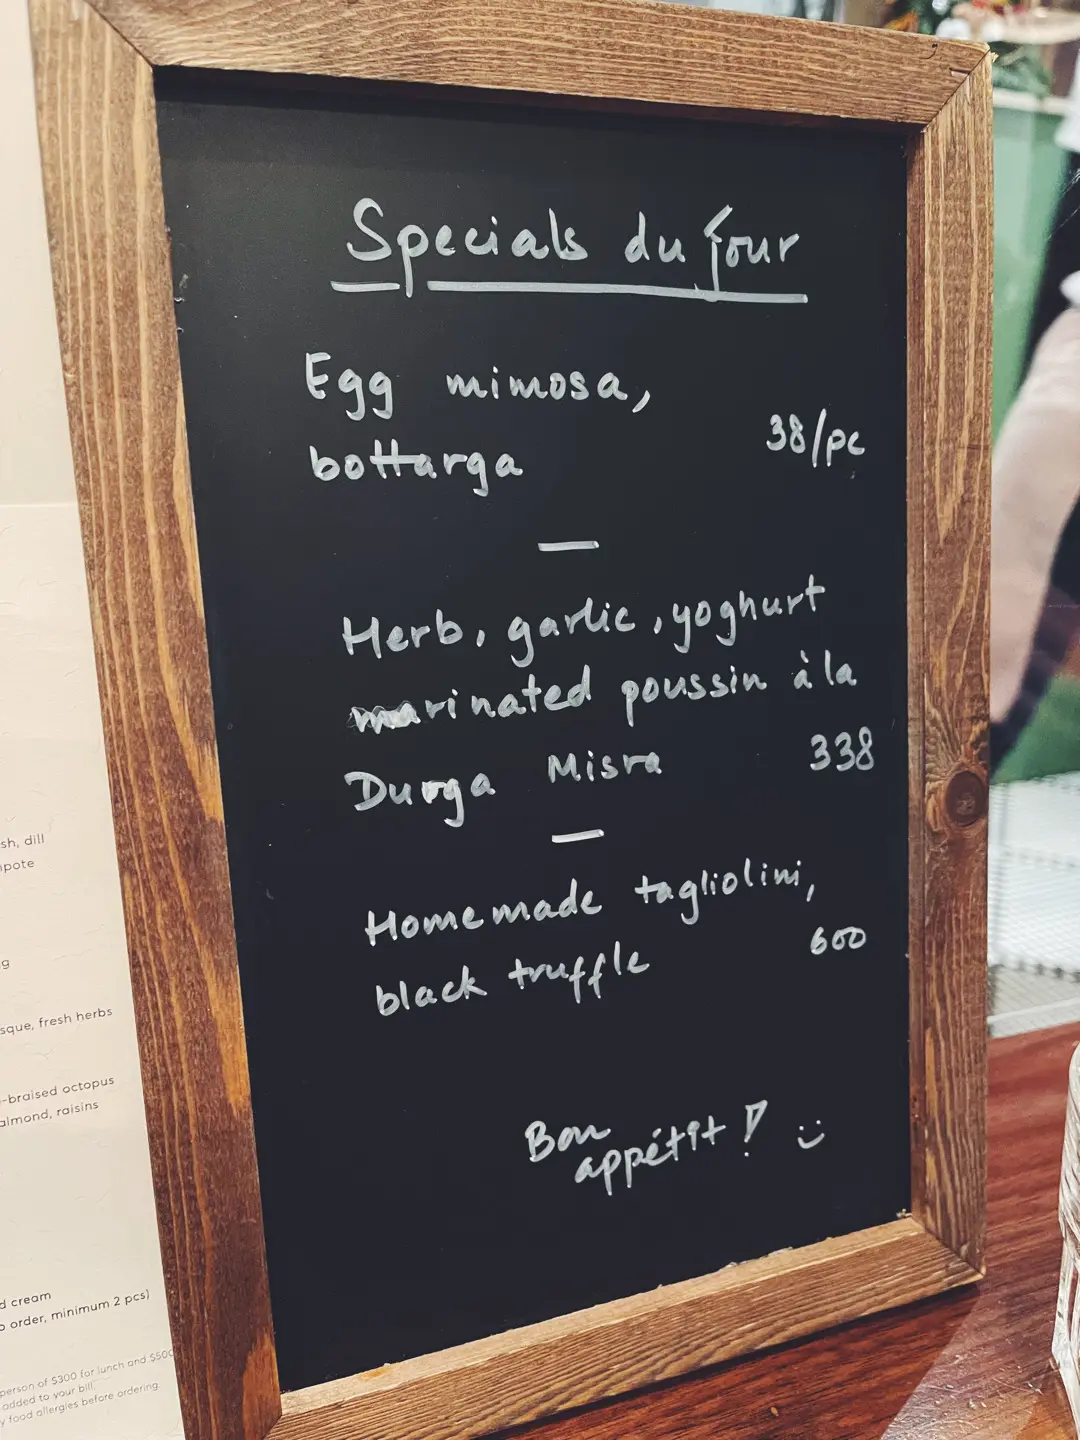 Specials du jour
Egg mimosa,
bottarga 38/pc
Herb, garlic, yoghurt
marinated poussin à la
Durga Misra 338
Homemade tagliolini,
black truffle 600
Bon
appétit! :)
sh, dill
mpote
g
sque, fresh herbs
-braised octopus
almond, raisins
d cream
o order, minimum 2 pcs)
person of $300 for lunch and $500
added to your bill.
y food allergies before ordering.